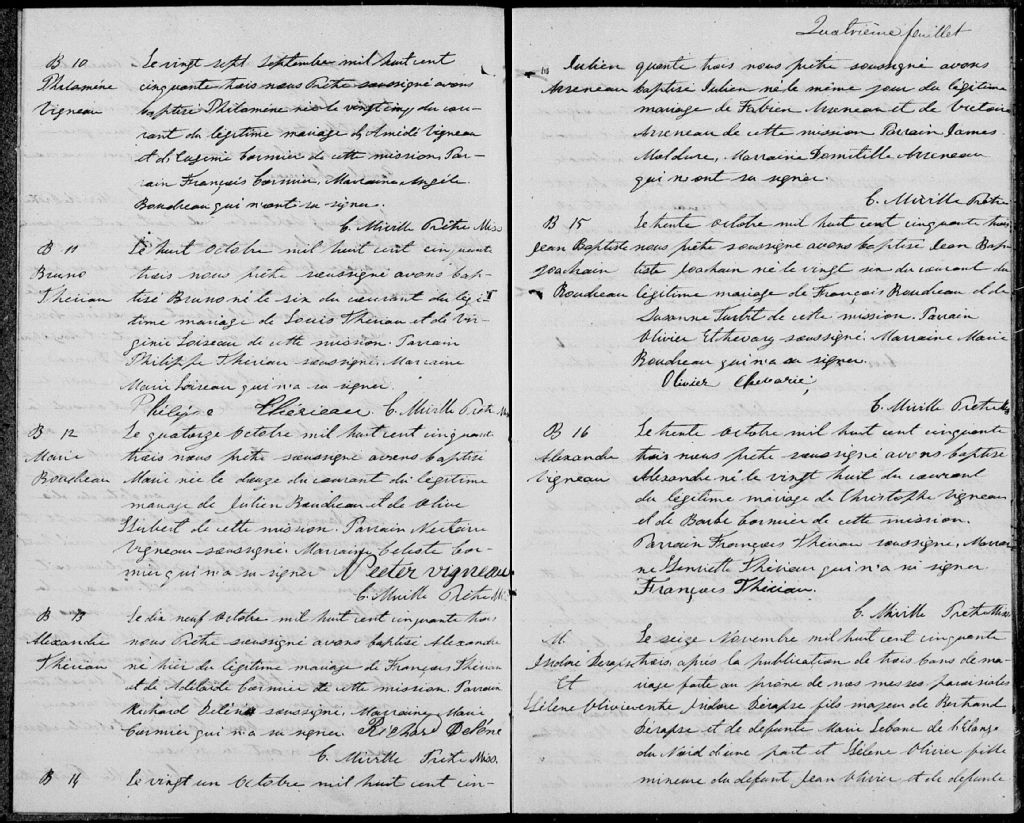 B 10
Philomène
Vigneau
Le vingt sept Septembre mil huit cent
cinquante trois nous Prêtre soussigné avons
baptisé Philomène née le vingt cinq du cou-
rant du légitime mariage d'Amidé Vigneau
et d'Eugénie Cormier de cette mission, Par-
rain François Cormier, Marraine Angèle
Boudreau qui n'ont su signer.
C. Miville Prêtre Miss
B 11
Bruno
Thériau
Le huit Octobre mil huit cent cinquante
trois nous prêtre soussigné avons bap-
tisé Bruno né le six du courant du légi-
time mariage de Louis Thériau et de Vir-
ginie Loiseau de cette mission. Parrain
Philippe Thériau soussigné. Marraine
Marie Loiseau qui n'a su signer.
Philippe Thérieau C. Miville Prêtre Miss
B 12
Marie
Boudreau
Le quatorze Octobre mil huit cent cinquante
trois nous prêtre soussigné avons baptisé
Marie née le douze du courant du légitime
mariage de Julien Boudreau et de Olive
Hubert de cette mission. Parrain Nectaire
Vigneau soussigné. Marraine Céleste Cor-
mier qui n'a su signer Necter vigneau
C. Miville Prêtre Miss
B 13
Alexandre
Thériau
Le dix neuf Octobre mil huit cent cinquante trois
nous Prêtre soussigné avons baptisé Alexandre
né hier du légitime mariage de François Thériau
et de Adélaïde Cormier de cette mission. Parrain
Richard Delène soussigné. Marraine Marie
Cormier qui n'a su signer Richard Delène
C. Miville Prêtre Miss.
B 14
Le vingt un Octobre mil huit cent cin-
Quatrième feuillet
Julien
Arseneau
quante trois nous prêtre soussigné avons
baptisé Julien né le même jour du légitime
mariage de Fabien Arseneau et de Victoire
Arseneau de cette mission Parrain James
Muldure, Marraine Domitille Arseneau
qui n'ont su signer
C. Miville Prêtre
B 15
Jean Baptiste
Joachain
Boudreau
Le trente Octobre mil huit cent cinquante trois
nous prêtre soussigné avons baptisé Jean Bap-
tiste Joachain né le vingt six du courant du
légitime mariage de François Boudreau et de
Suzanne Turbit de cette mission. Parrain
Olivier Etchevary soussigné. Marraine Marie
Boudreau qui n'a su signer.
Olivier Chevarie,
C. Miville Prêtre Miss
B 16
Alexandre
Vigneau
Le trente Octobre mil huit cent cinquante
trois nous prêtre soussigné avons baptisé
Alexandre né le vingt huit du courant
du légitime mariage de Christophe Vigneau
et de Barbe Cormier de cette mission.
Parrain François Thériau soussigné. Marrai-
ne Henriette Thériau qui n'a su signer
François Thériau.
C. Miville Prêtre Miss
M.
Isidore Dérapse
Et
Hélène Olivier
Le seize Novembre mil huit cent cinquante
trois, après la publication de trois bans de ma-
riage faite au prône de nos messes paroissiales
entre Isidore Dérapse fils majeur de Bertrand
Dérapse et de défunte Marie Lebane de l'Etang
du Nord d'une part et Hélène Olivier fille
mineure du défunt Jean Olivier et de défunte